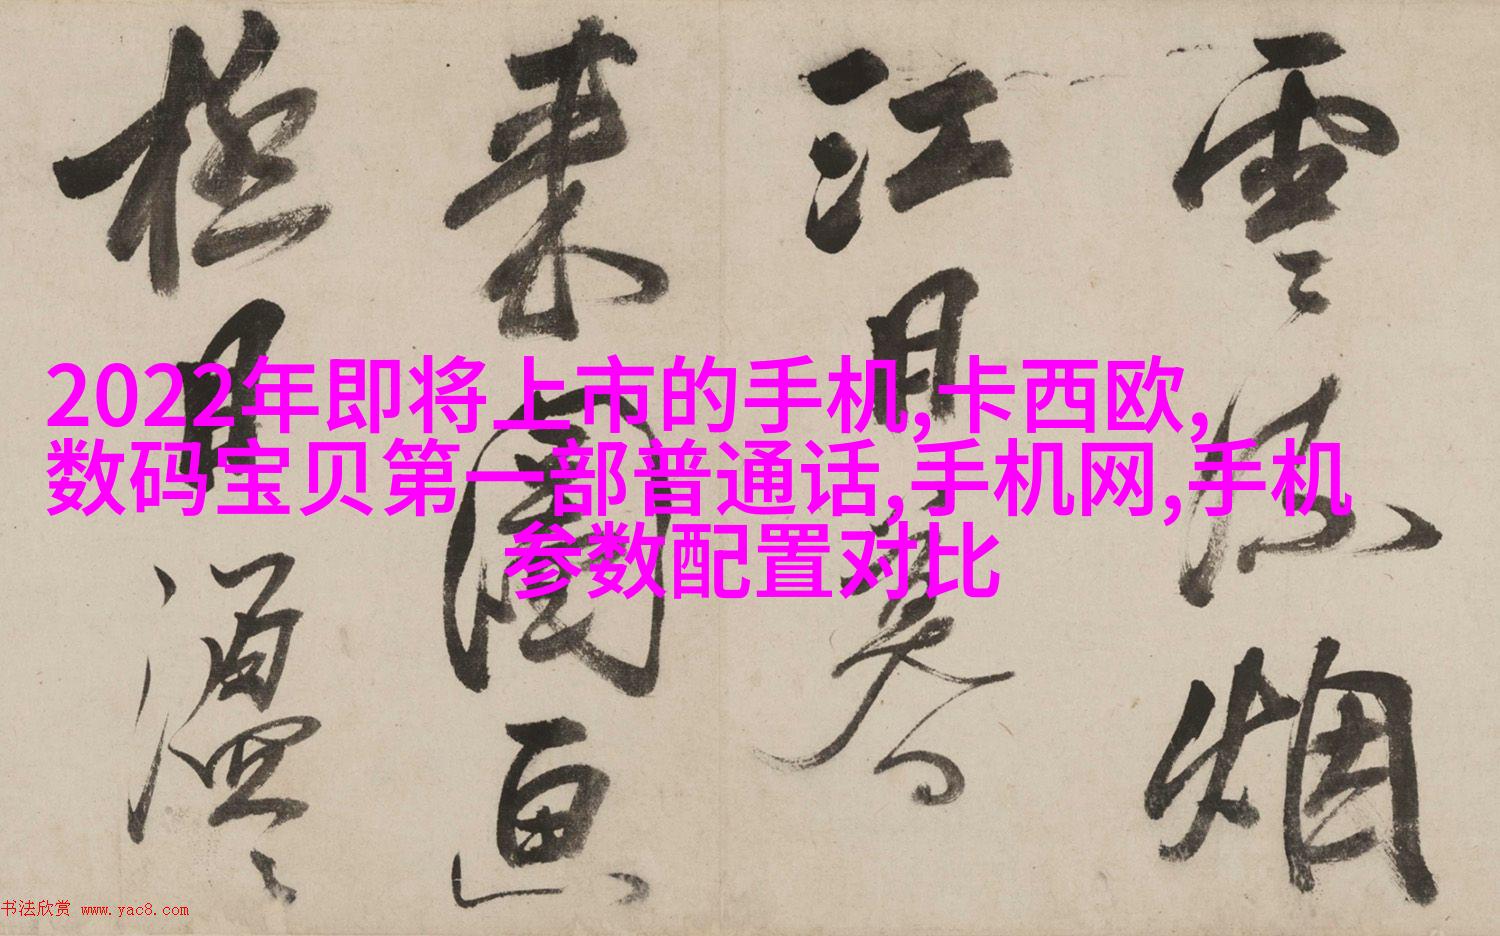 2022年即将上市的手机,卡西欧,
数码宝贝第一部普通话,手机网,手机
参数配置对比
雲 烟
江月
来 画
極目
书法欣赏 www.yac8.com